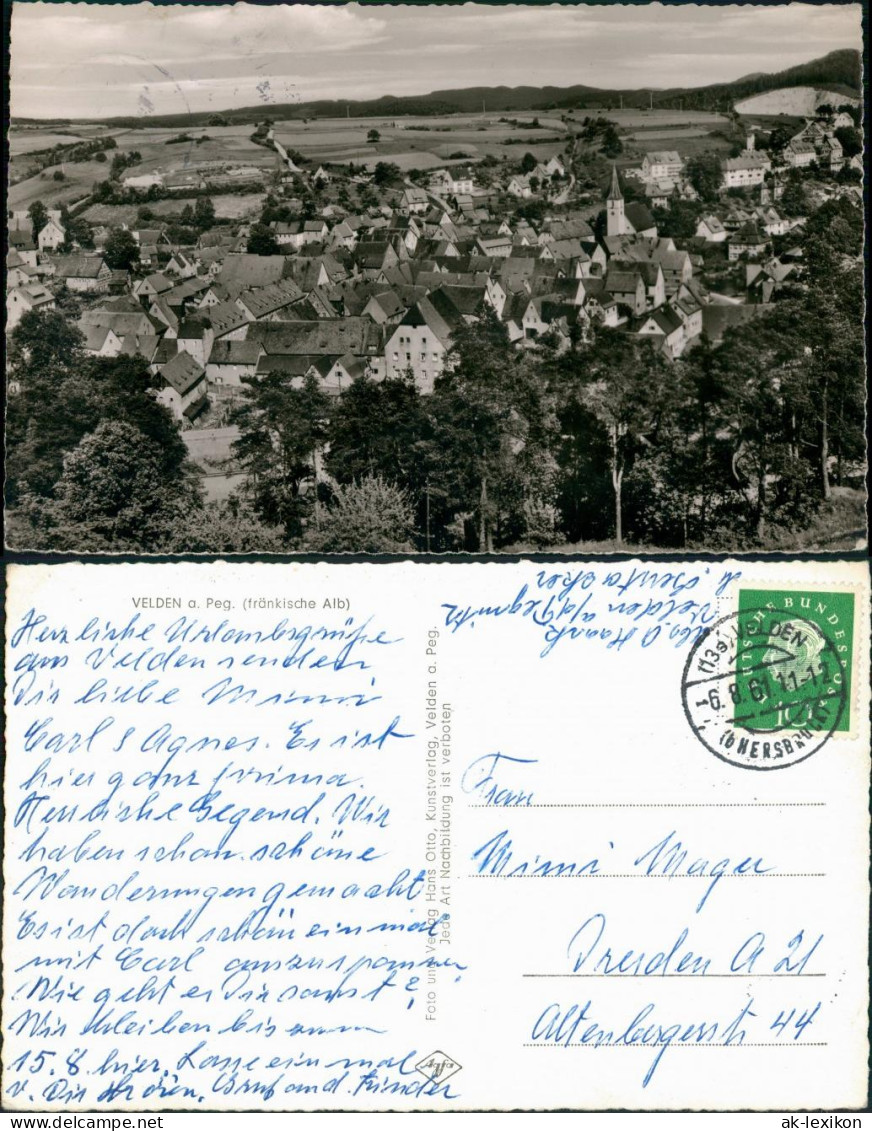 VELDEN a. Peg. (fränkische Alb)
Herzliche Urlaubsgrüße
aus Velden senden
Dir liebe Mimi
Carl & Agnes. Es ist
hier ganz prima.
Herrliche Gegend. Wir
haben schon schöne
Wanderungen gemacht
Es ist doch schön einmal
mit Carl auszuspannen
Wie geht es Dir sonst?
Wir bleiben bis zum
15.8. hier. Lasse einmal
v. Dir hören. Gruß
Foto und Verlag Hans Otto, Kunstverlag, Velden a. Peg.
Jede Art Nachbildung ist verboten
Agfa
Velden a/d Pegnitz
DEUTSCHE BUNDESPOST
10
(13a) VELDEN
-6.8.61.11-12
(b HERSBRUCK)
Frau
Mimi Mager
Dresden A 21
Altenbergerstr 44
ak-lexikon.de
© ak-lexikon